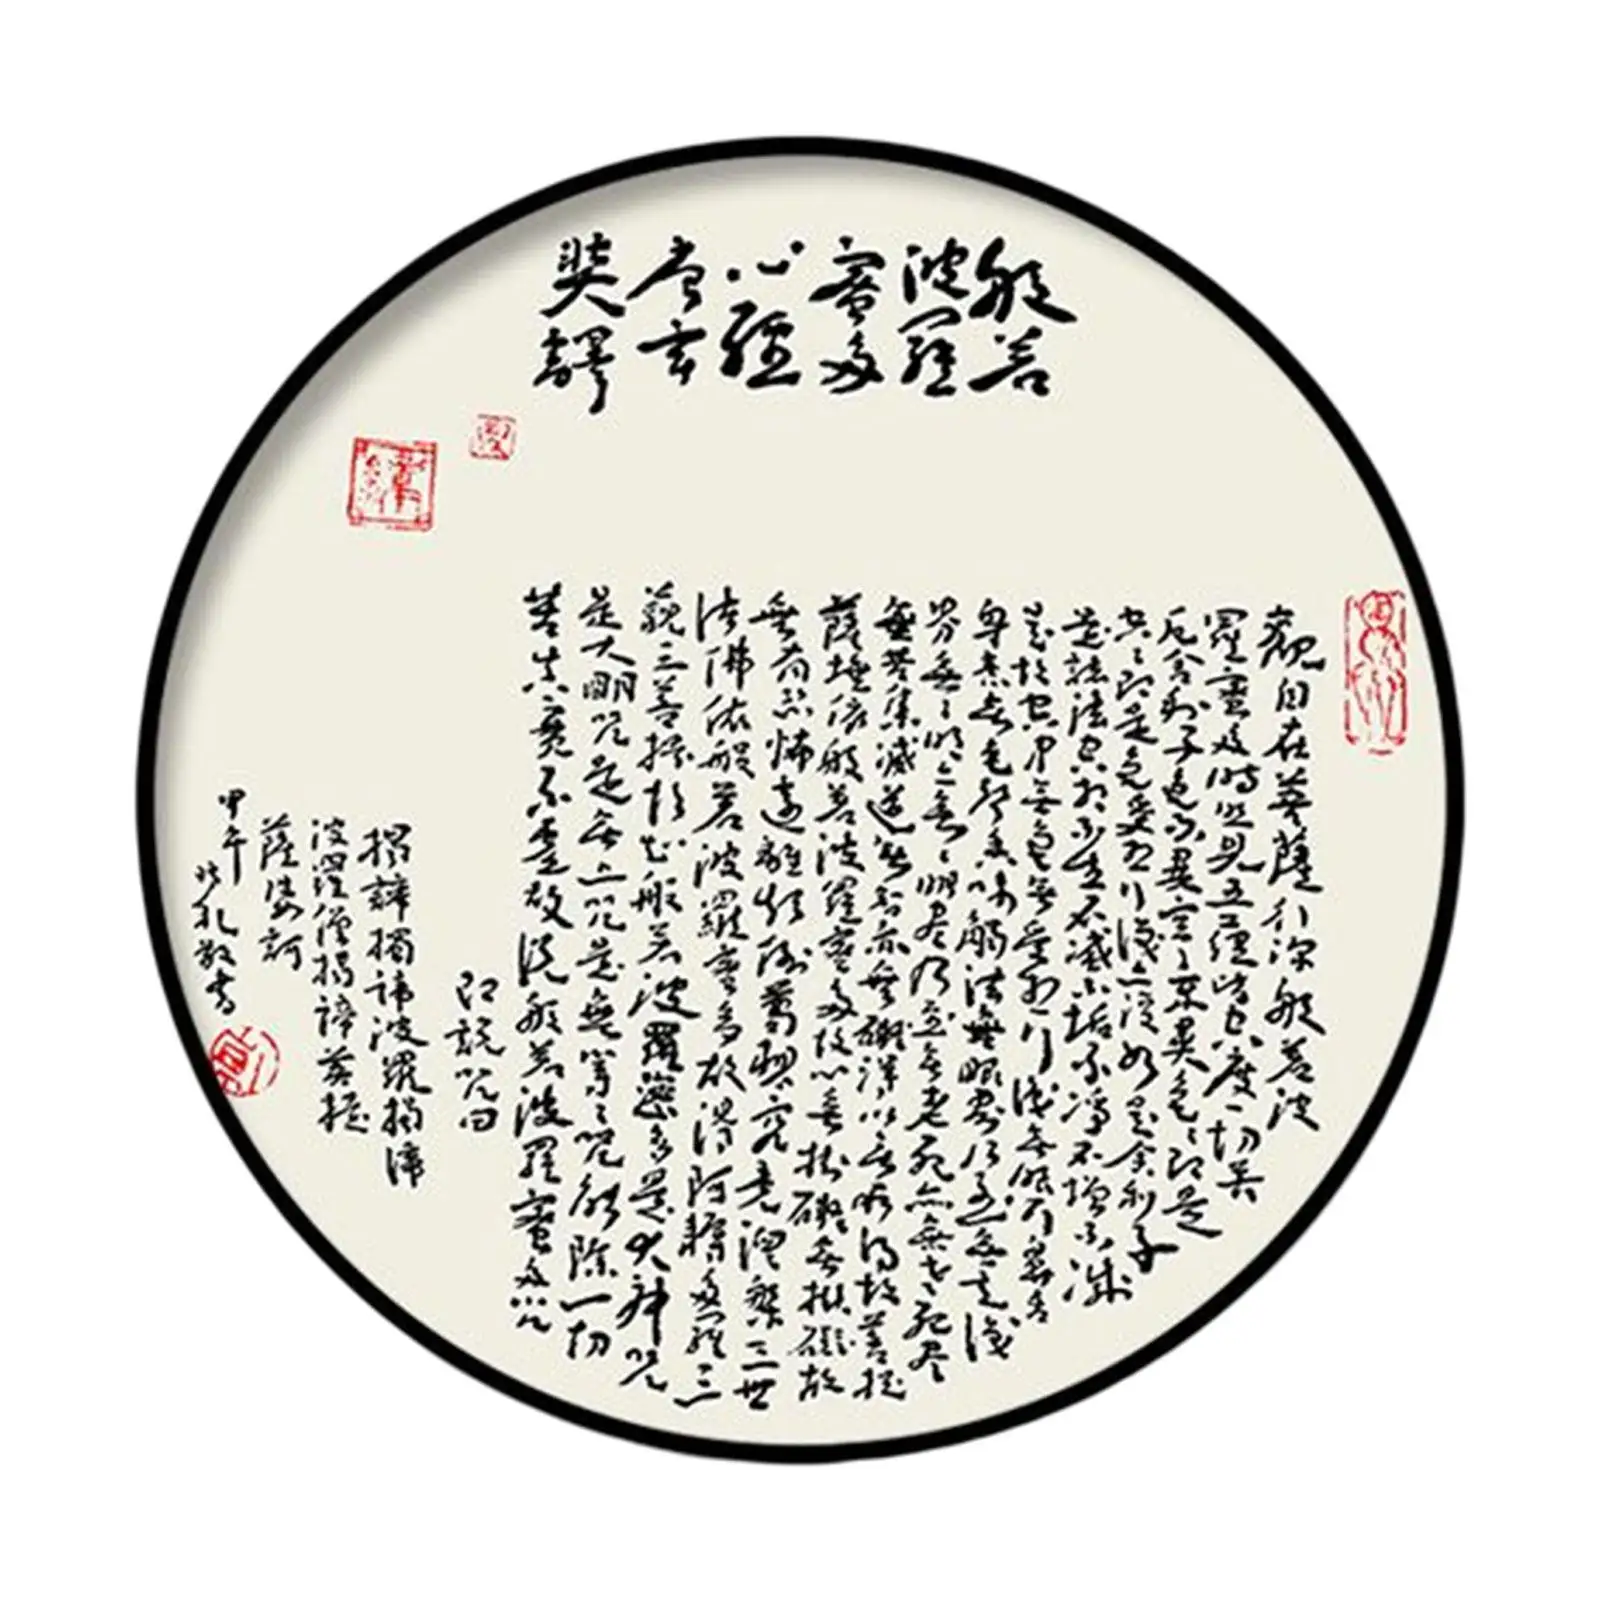 般若
波羅
蜜多
心經
唐玄
奘譯
觀自在菩薩行深般若波
羅蜜多時照見五蘊皆空度一切苦
厄舍利子色不異空空不異色色即是
空空即是色受想行識亦復如是舍利子
是諸法空相不生不滅不垢不淨不增不減
是故空中無色無受想行識無眼耳鼻舌
身意無色聲香味觸法無眼界乃至無意識
界無無明亦無無明盡乃至無老死亦無老死盡
無苦集滅道無智亦無得以無所得故菩提
薩埵依般若波羅蜜多故心無掛礙無掛礙故
無有恐怖遠離顛倒夢想究竟涅槃三世
諸佛依般若波羅蜜多故得阿耨多羅三
藐三菩提故知般若波羅蜜多是大神咒
是大明咒是無上咒是無等等咒能除一切
苦真實不虛故說般若波羅蜜多咒
即說咒曰
揭諦揭諦波羅揭諦
波羅僧揭諦菩提
薩婆訶
甲午
敬書